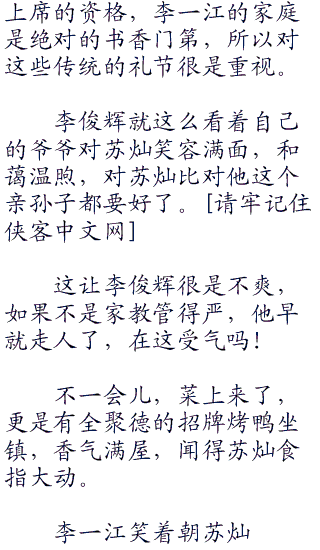 上席的资格，李一江的家庭
是绝对的书香门第，所以对
这些传统的礼节很是重视。
李俊辉就这么看着自己
的爷爷对苏灿笑容满面，和
蔼温煦，对苏灿比对他这个
亲孙子都要好了。[请牢记住
侠客中文网]
这让李俊辉很是不爽，
如果不是家教管得严，他早
就走人了，在这受气吗！
不一会儿，菜上来了，
更是有全聚德的招牌烤鸭坐
镇，香气满屋，闻得苏灿食
指大动。
李一江笑着朝苏灿